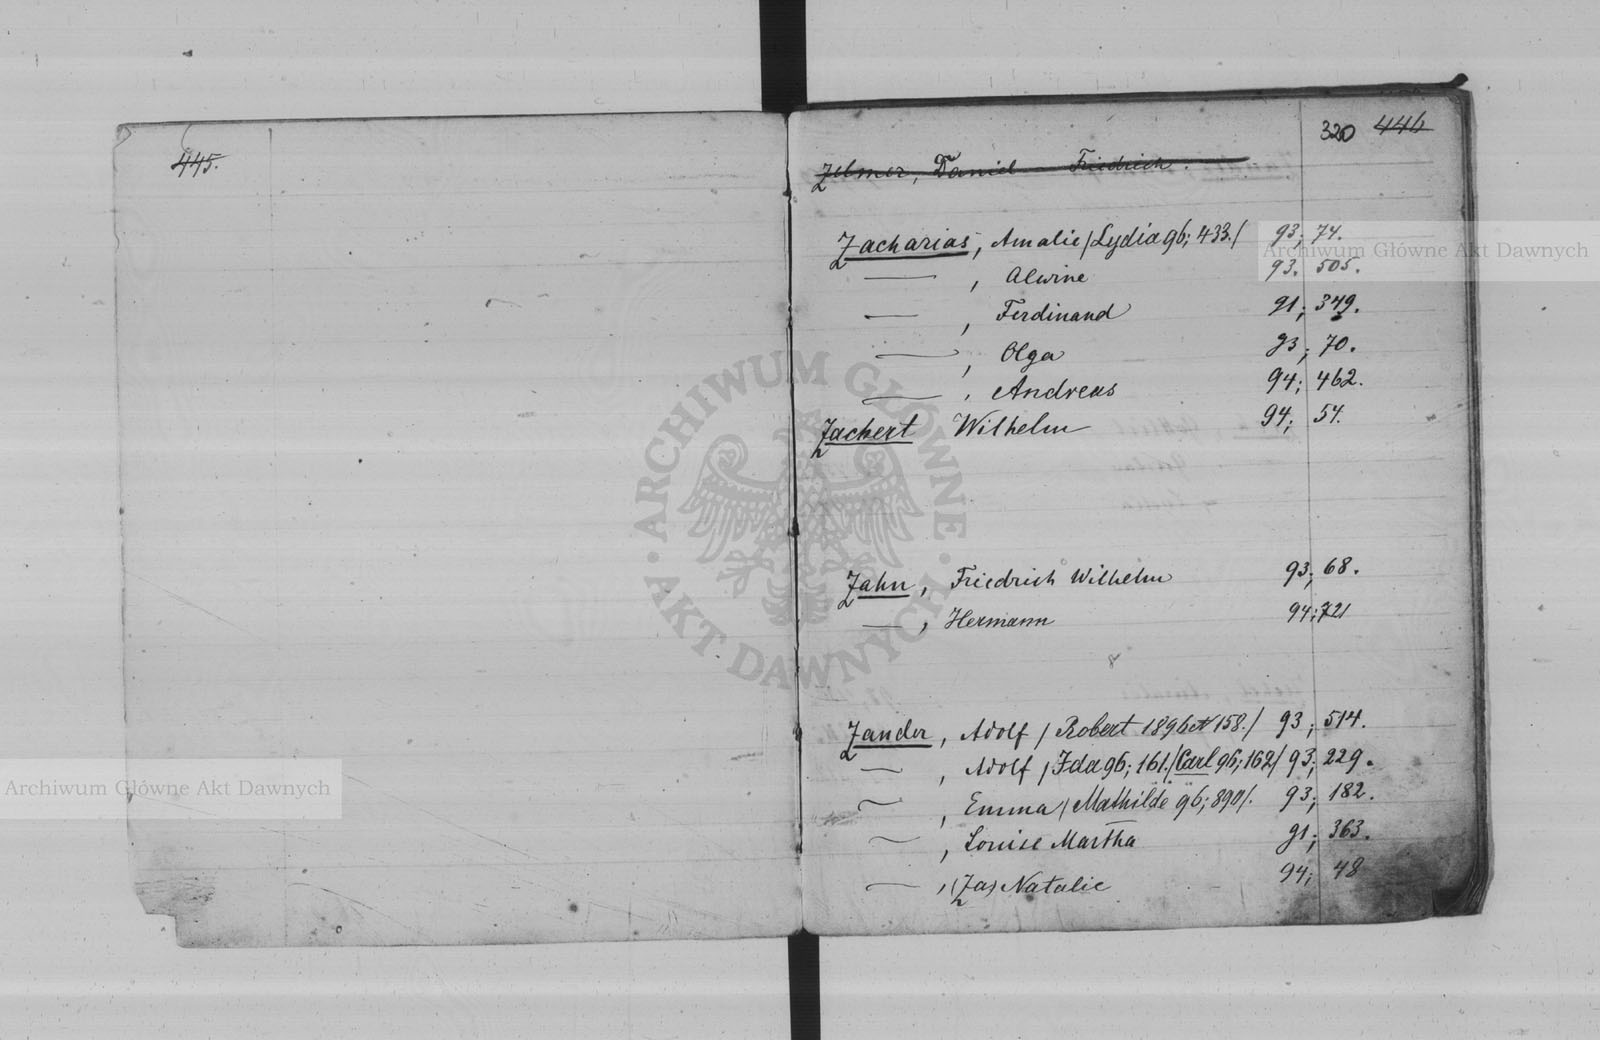 445.
320 446
Zelmer, Daniel Friedrich.
Zacharias, Amalie /Lydia 96; 433./ 93; 74.
— , Alwine 93. 505.
— , Ferdinand 91; 349.
— , Olga 93; 70.
— , Andreas 94; 462.
Zachert Wilhelm 94; 54.
Zahn, Friedrich Wilhelm 93; 68.
— , Hermann 94; 721
Zander, Adolf / Robert 1896 № 158./ 93; 514.
— , Adolf /Ida 96; 161./Carl 96; 162/ 93; 229.
— , Emma /Mathilde 96; 890/. 93; 182.
— , Louise Martha 91; 363.
— , (Za) Natalie 94; 48
ARCHIWUM GŁÓWNE · AKT DAWNYCH ·
Archiwum Główne Akt Dawnych
Archiwum Główne Akt Dawnych